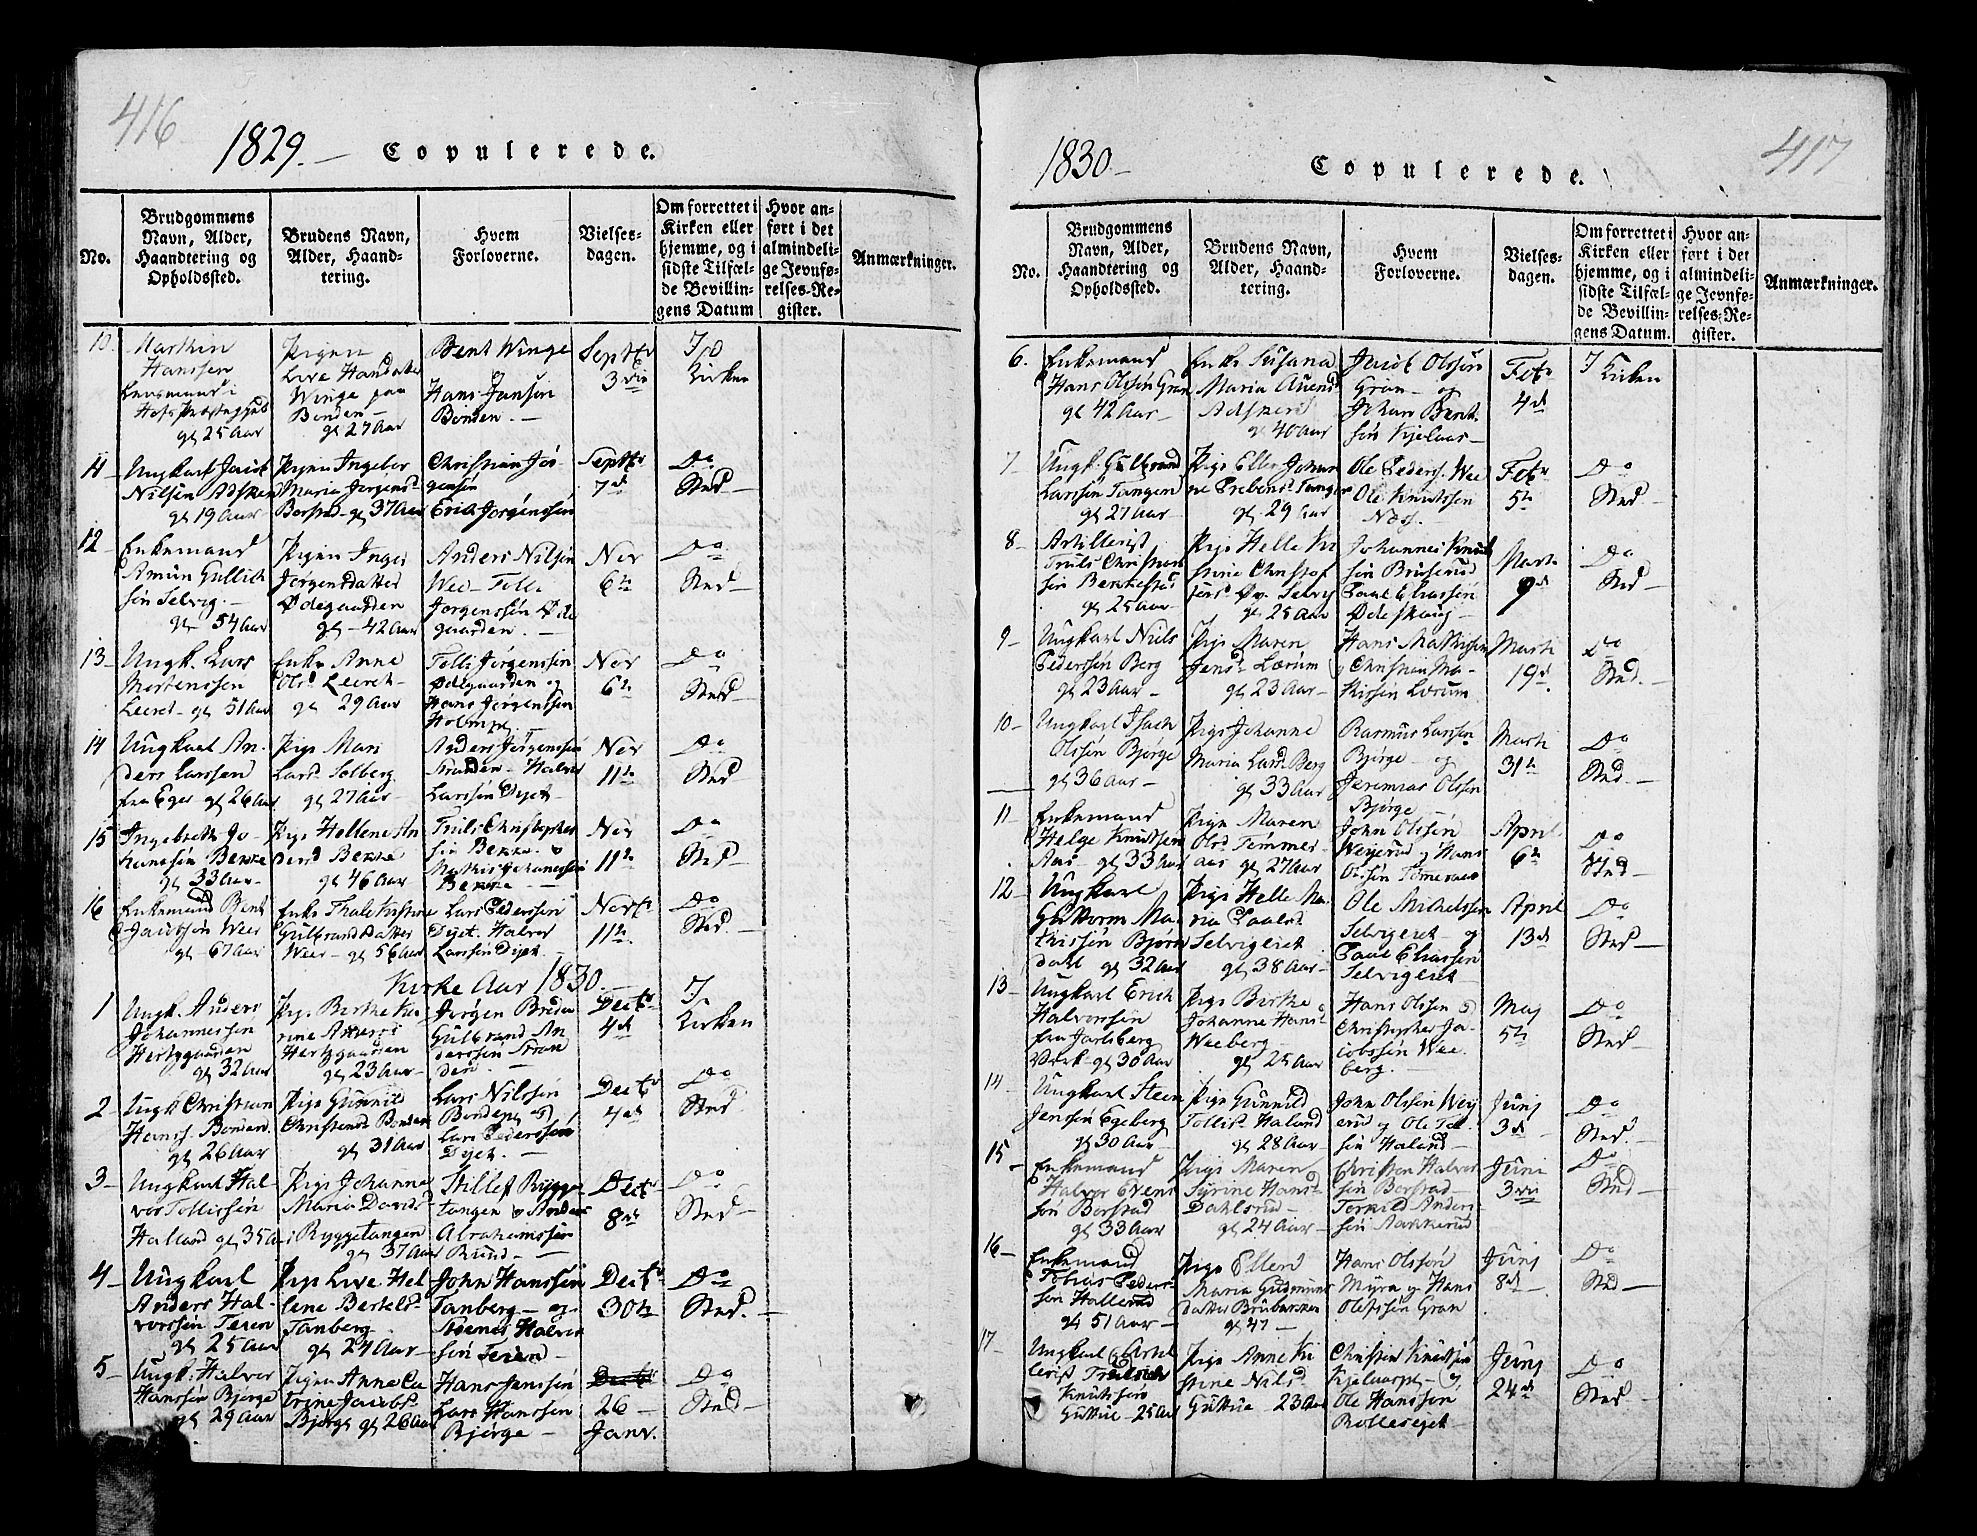 416
1829. — Copulerede.
No.
Brudgommens
Navn, Alder,
Haandtering og
Opholdssted.
Brudens Navn,
Alder, Haand-
tering.
Hvem
Forloverne.
Vielses-
dagen.
Om forrettet i
Kirken eller
hjemme, og i
sidste Tilfæl-
de Bevillin-
gens Datum
Hvor an-
ført i det
almindeli-
ge Jevnfø-
relses-Re-
gister.
Anmærkninger.
10.
Hanssen
Lensmand i
gl 25 Aar
Pigen
Live
Winge paa
Bonden —
gl 27 Aar
Bent Winge
Hans Jansen
Bonden. —
Septr
3
Kirken
11
Ungkarl Jacob
Nilsen
gl 19 Aar
Pigen Ingebor
Maria Jørgensd
gl 37 Aar
Christian Jør-
gensen
Erich Jørgenssen
Septr
7d
Do
Sted —
12
Enkemand
Amun Gullich
sen Selvig. —
gl 54 Aar
Pigen Inger
Jørgensdatter
Ødegaarden
gl — 42 Aar
Anders Nilsen
Wee — Tolli
Jørgenssen Øde
gaarden. —
Nov
6te
Do
Sted —
13
Ungk. Lars
Mortenssen
Leeret — gl 51 Aar
Enke Anne
Olsd Leeret —
gl 29 Aar
Tolli Jørgenssen
Ødegaarden og
Hans Jørgenssen
Nov
6te
Do
Sted —
14
Ungkarl An-
ders Larssen
fra Eger gl 26 Aar
Pige Mari
Larsd Solberg
gl 27 Aar —
Anders Jørgenssen
Stranden — Halvor
Larssen
Nov
11te
Do
Sted
15
Ingebreth Jo-
hanssen Bekke
gl 33 Aar —
Pige Hellene An
dersd Bekke
gl 46 Aar
Truls Christopher
sen Bekke. o
Mathis Johannessen
Bekke —
Nov
11te
Do
Sted —
16
Enkemand Bent
Jacobsen Wee
gl — 67 Aar
Enke Thale Kirstine
Gulbrandsdatter
Wee — gl 56 Aar
Lars Pederssen
Halvor
Larssen
11te
Do
Sted. —
Kirke Aar 1830. —
1
Ungk. Anders
Johannessen
Hertygaarden
gl 32 Aar
Pige Berthe Ka-
rine
Hertygaarden
gl 23 Aar —
Jørgen
Gulbrand An
derssen Stran
den. —
Decbr
4d
I
Kirken
2
Ungk Christian
Hanss. Bonden.
gl 26 Aar
Pige Gunnild
Christensd Bonden
gl 31 Aar
Lars Nilssen
Bonden og
Lars Pederssen
Decbr
4de
Do
Sted
3 —
Ungkarl Hal-
vor Tollissen
Haland gl 35 A
Pige Johanne
Maria Davids
i Ryggetangen
gl 37 Aar
Rygge-
tangen o Anders
Abrahamssen
Brund —
Decbr
8de
Do
Sted —
4 —
Ungkarl
Anders Hal-
vorssen Teien
gl 25 Aar
Pige Live Hel
lene Bertels
Tanberg
gl 24 Aar —
John Hanssen
Tanberg — og
Halvor
sen Teien —
Decbr
30te
Do
Sted. —
5
Ungk. Halvor
Hanssen Bjørge
gl 29 Aar
Pigen Anne Ca
trine Jacobs
Bjørge gl 26 Aar
Hans Jenssen
Lars Hanssen
Bjørge —
26 —
Janr.
Do
Sted —
417
1830 — Copulerede.
No.
Brudgommens
Navn, Alder,
Haandtering og
Opholdssted.
Brudens Navn,
Alder, Haand-
tering.
Hvem
Forloverne.
Vielses-
dagen.
Om forrettet i
Kirken eller
hjemme, og i
sidste Tilfæl-
de Bevillin-
gens Datum.
Hvor an-
ført i det
almindeli-
ge Jevnfø-
relses-Re-
gister.
Anmærkninger.
6.
Enkemand
Hans Olssen Gran
gl 42 Aar —
Enke Susana
Maria
gl 40 Aar
Jacob Olssen
Gran — og
Johan Bent
sen
Febr
4de
I Kirken
7 —
Ungk. Gulbrand
Larssen Tangen
gl 27 Aar —
Pige Ellen Johan
ne Prebensd Tangen
gl. 29 Aar
Ole Pederss. Wee
Ole Knutssen
Næss. —
Febr
5te
Do
Sted —
8 —
Artillerist
Truls Christian
sen
gl 25 Aar —
Pige Helle Ki
stine Christof
Selvig
gl 25 Aar
Johannes Knud
sen Bruserud
Paul Eliassen
Marti
9de
Do
Sted —
9 —
Ungkarl Niels
Pederssen Berg
gl 23 Aar —
Pige Maren
Jensd Lærum
gl 23 Aar —
Hans Mathissen
Christian Ma-
thissen Lærum
Marti
19d.
Do
Sted.
10 —
Ungkarl Isach
Olssen Bjørge
gl 36 Aar —
Pige Johanne
Maria Larsd Berg
gl 33 Aar
Rasmus Larssen
Bjørge — og
Jeremias Olssen
Bjørge —
Marti
31te
Do
Sted. —
11
Enkemand
Helge Knudssen
Aas — gl 33 Aar
Pige Maren
Olsd Temmer-
aas gl 27 Aar
John Olssen
Weyerud og Hans
Olssen Tømeraas
April
6te
Do
Sted
12 —
Ungkarl
Guttorm Ma-
thissen Bjørn
dahl gl 32 Aar
Pige Helle Ma-
ria Paalsd
Selvigeret
gl 38 Aar —
Ole Michelssen
Selvigeret — og
Paul Eliassen
Selvigeret
April
13de
Do
Sted —
13 —
Ungkarl Erich
Halvorssen
fra Jarlsberg
Værk — gl 30 Aar
Pige Birthe
Johanne Hans
Weeberg —
gl 25 Aar
Hans Olssen o
Christopher Ja-
cobssen Wee
berg. —
Maj
5te
Do
Sted —
14 —
Ungkarl Steen
Jenssen Egeberg
gl 30 Aar —
Pige Gunnild
Tollisd Haland
gl 28 Aar
John Olssen Wey
erud og Ole Tol
sen Haland —
Junj
3de
Do
Sted. —
15 —
Enkemand
Halvor Evens
sen Borstad
gl 33 Aar
Pige Maren
Syrine Hans
Dahlsrud —
gl — 24 Aar —
Christen Halvor
sen Borstad —
Torkild Anders
sen Aakkerud
Juni
3
Do
Sted —
16 —
Enkemand
Tobias Peders
sen Hallerud
gl 51 Aar —
Pige Ellen
Maria Gudmund
datter
gl 47 —
Hans Olssen
Myra og Hans
Olessen Gran
Junj
8de —
Do
Sted —
17 —
Ungkarl
Knutssen
Guttue — 25 Aar
Pige Anne Ki
stine Nilsd
Guttue 23 Aar
Christen Knudssen
og
Ole Hanssen
Junj
24de
Do
Sted —